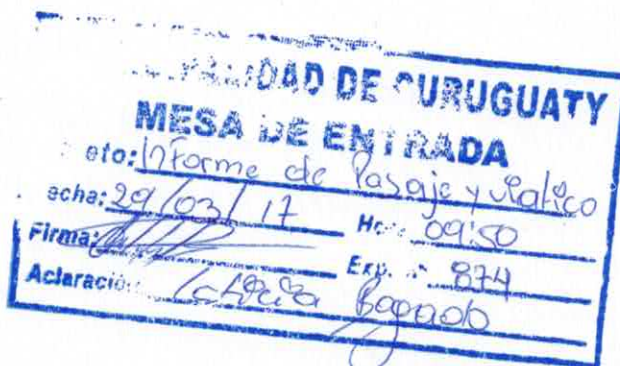 DE CURUGUATY
MESA DE ENTRADA
eto: Informe de Pasaje y viatico
echa: 29/03/17 Ho 09:50
Firma:
Exp. 874
Aclaració